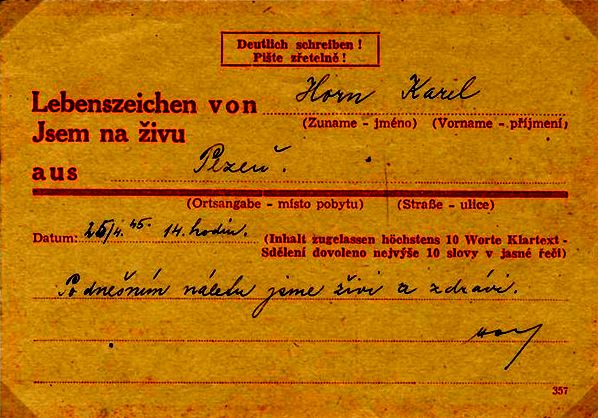 Deutlich schreiben !
Pište zřetelně !
Lebenszeichen von Horn Karel
Jsem na živu
(Zuname - jméno) (Vorname - příjmení)
aus Plzeň.
(Ortsangabe - místo pobytu) (Straße - ulice)
Datum: 25/4.45. 14. hodin.
(Inhalt zugelassen höchstens 10 Worte Klartext -
Sdělení dovoleno nejvýše 10 slovy v jasné řeči)
Po dnešním náletu jsme živi a zdrávi.
357